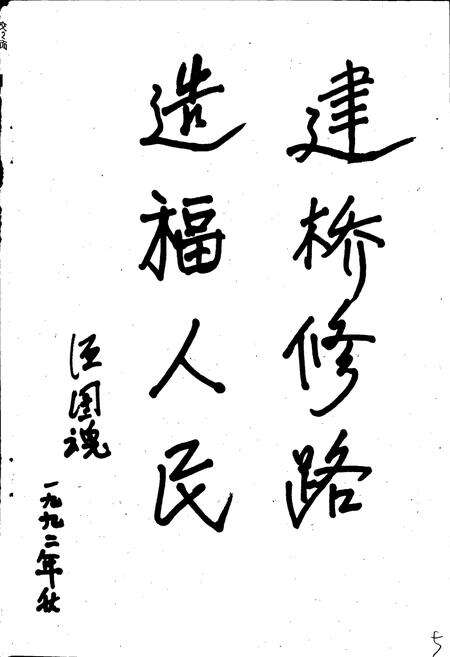 建桥修路
造福人民
汪国魂
一九九二年秋
5